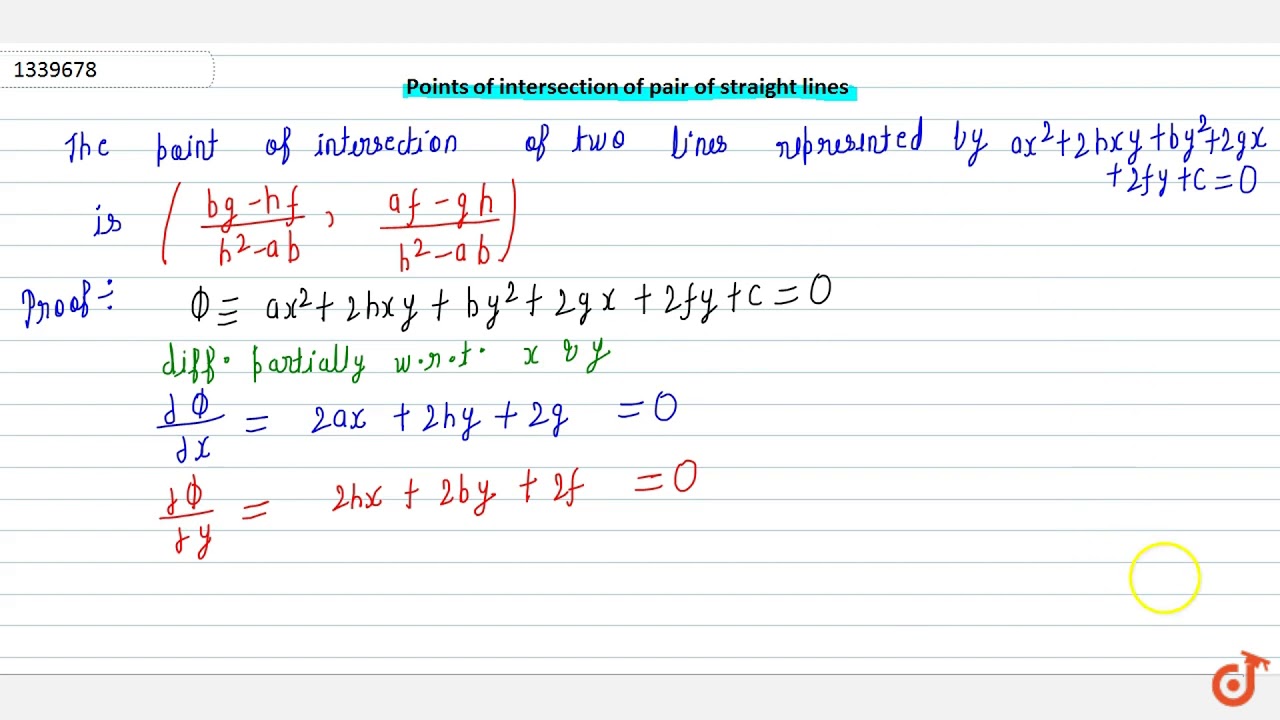 1339678
Points of intersection of pair of straight lines
The point of intersection of two lines represented by ax²+2hxy+by²+2gx
+2fy+c=0
is ( (bg-hf)/(h²-ab) , (af-gh)/(h²-ab) )
Proof:- Φ≡ ax²+2hxy+by²+2gx+2fy+c=0
diff. partially w.r.t. x & y
∂Φ/∂x = 2ax+2hy+2g =0
∂Φ/∂y = 2hx+2by+2f =0